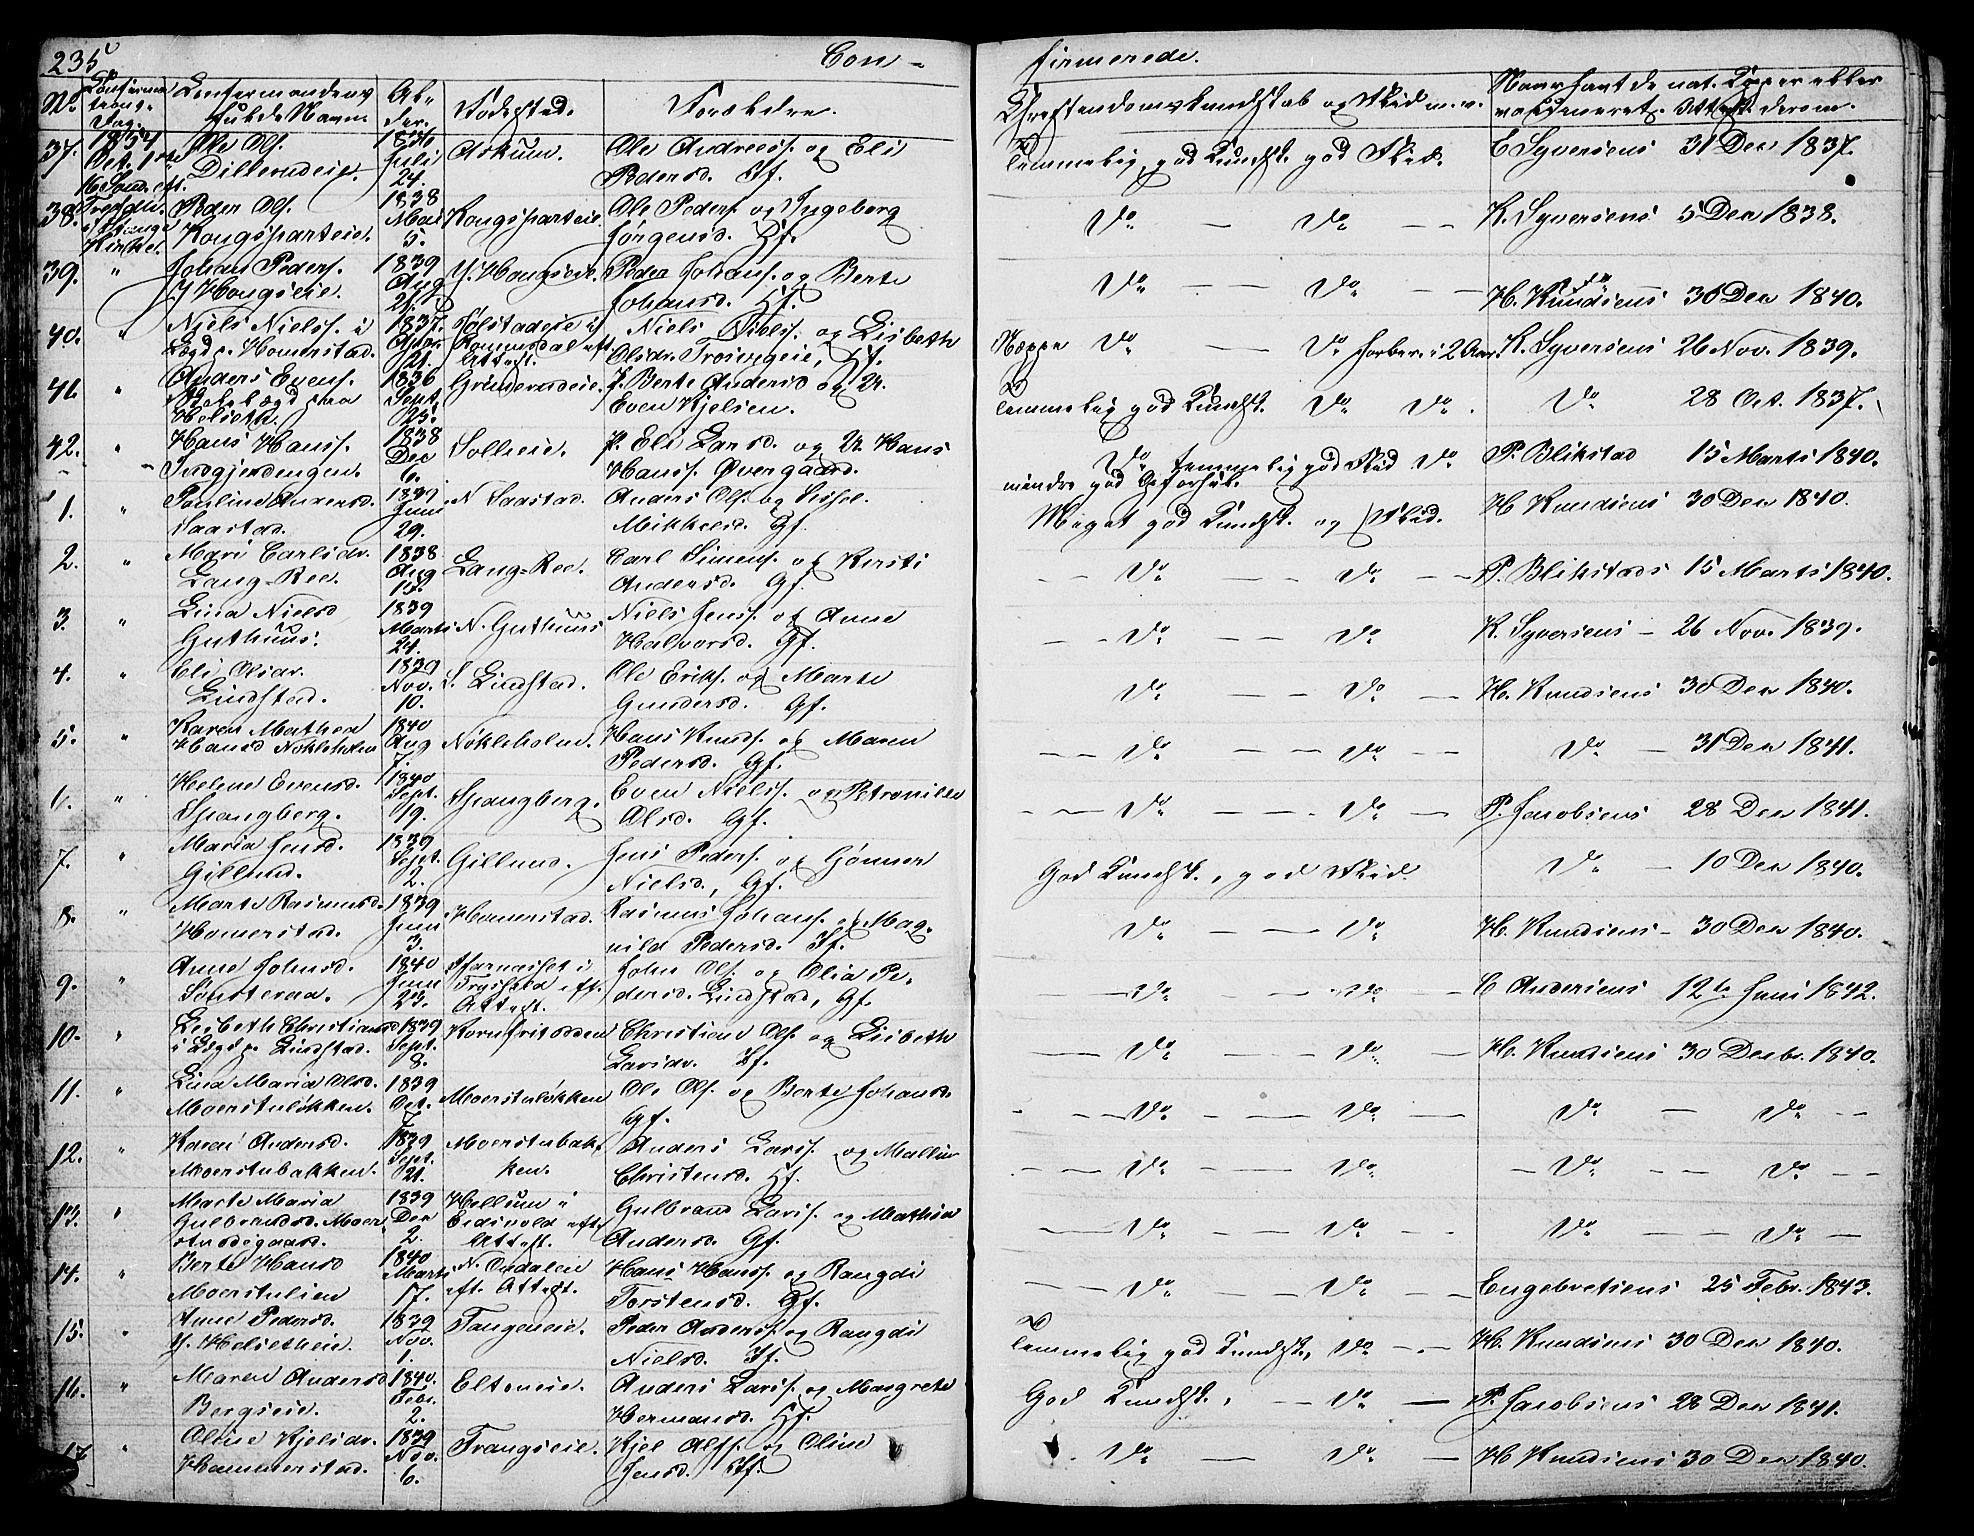 235
Con-
firmerede.
No.
Confirma-
tions-
Dag.
Confirmandens
fulde Navn
Al-
der.
Fødested.
Forældre.
Christendomskundskab og Flid m. v.
Naar havt de nat. Kopper eller
vaccineret. Attest derom.
37.
1854
Oct. 1ste
Ole Ols.
1836
Juli
24.
Askum.
Ole Andreas. og Eli
Pedersd. If.
temmelig god Kundsk. god Flid.
C Syversens 31 Dec 1837.
38.
Kirke.
Peder Ols.
Kongsparteie.
1838
Mai
5.
Kongsparteie.
Ole Peders. og Ingeborg
Jørgensd. If.
Do — — Do — —
K. Syversens 5 Dec 1838.
39.
"
Johan Peders.
1839
Aug
Peder Johans. og Berte
Johansd. If.
Do — — Do — —
H. Knudsens 30 Dec 1840.
40.
"
Niels Niels. i
Lægd p. Homerstad.
1837.
21.
Romsdal eft.
Attest.
Niels Niels. og Lisbeth
Olsdr. If.
Neppe Do — Do forber. i 2 Aar.
K. Syversens 26 Nov. 1839.
41.
"
Anders Evens.
1836
Sept.
25.
Grinderudeie.
P. Berte Andersd og U.
Even Kjelsen.
temmelig god Kundsk. Do Do.
Do 28 Oct. 1837.
42.
"
Hans Hans.
Indgjerdengen.
1838
Dec
6.
Solheie.
P. Eli Larsd. og U. Hans
Hans. Øvergaard.
Do temmelig god Flid Do
mindre god Opførsel.
P. Blikstad 15 Marts 1840.
1.
"
Pauline Andersd.
Saastad.
1839
Juni
29.
N. Saastad.
Anders Ols. og Sissel
Mikkelsd. Gf.
Meget god Kundsk. og Flid.
H Knudsens 30 Dec 1840.
2.
"
Mari Carlsdr.
Lang-Ree.
1838
Aug
15.
Lang-Ree.
Carl Simens. og Kersti
Andersd. Gf.
— — Do — — Do — —
P. Blikstads 15 Marts 1840.
3.
"
Lina Nielsd
Guthuus.
1839
Marts
24.
N. Guthuus
Niels Jens. og Anne
Halvorsd. Gf.
— — Do — — Do —
K. Syversens — 26 Nov. 1839.
4.
"
Eli Olsdr.
Lindstad.
1839
Nov.
10.
S. Lindstad.
Ole Eriks. og Marte
Gundersd. Gf.
Do — — Do —
H. Knudsens 30 Dec 1840.
5.
"
Karen Mathea
Hansd Nökleholm
1840
Aug
7.
Nökleholm.
Hans Knuds. og Maren
Pedersd. Gf.
— — Do — — Do — —
Do — 31 Dec 1841.
6.
"
Helene Evensd.
Spangberg.
1840
Sept.
19.
Spangberg.
Even Niels. og Petronille
Olsd. Gf.
— — Do — — Do —
P. Jacobsens 28 Dec 1841.
7.
"
Maria Jensd.
Gillund.
1839
Sept.
2.
Gillund.
Jens Peders. og Gönner
Nielsd., Gf.
God Kundsk., god Flid.
Do — 10 Dec 1840.
8.
"
Marte Rasmusd.
Homerstad.
1839
Juni
3.
Homerstad.
Rasmus Johans. og Mag-
nild Pedersd. If.
Do — — Do —
H. Knudsens — 30 Dec 1840.
9.
"
Anne Johnsd.
1840
Juni
23.
Trysild eft.
Attest.
John Ols. og Olia Pe-
dersd. Lindstad, Gf.
— — Do — — Do — —
C Andersens 12te Juni 1842.
10.
"
Lisbeth Christiansd
i Lægd p. Lindstad.
1839
Sept.
8.
Christian Ols. og Lisbeth
Larsdr. If.
— — Do — — Do —
H. Knudsens 30 Decbr. 1840.
11.
"
Lina Maria Olsd.
Moerstuløkken.
1839
Oct.
7.
Moerstuløkken
Ole Ols. og Berte Johansd.
Gf.
— — Do — — Do —
Do — Do — —
12.
"
Karen Andersd.
Moerstubakken.
1839
Sept.
21.
Moerstubak-
ken.
Anders Lars. og Mallin
Christensd. If.
— — Do — — Do
— Do — Do — —
13.
"
Marte Maria
Gulbrandsd. Moer-
stuødegaard.
1839
Dec
2.
Hellum i
Eidsvold eft.
Attest.
Gulbrand Lars. og Mathea
Andersd. Gf.
— — Do — — Do — —
Do — Do —
14.
"
Berte Hansd
Moerstulien
1840
Marts
17.
N. Odalen
eft. Attest.
Hans Hans. og Rangdi
Torstensd. Gf.
— — Do — — Do — —
Engebretsens 25 Febr. 1843.
15.
"
Anne Pedersd.
Y. Helsetheie.
1839
Nov.
1.
Tangeneie.
Peder Anders. og Rangdi
Nielsd. If.
temmelig god Kundsk, Do — —
H. Knudsens 30 Dec 1840.
16.
"
Maren Andersd
Bergseie.
1840.
Febr.
2.
Eltoneie.
Anders Lars. og Margrete
Hermansd. If.
God Kundsk, — Do —
P. Jacobsens 28 Dec 1841.
17
"
Oline Kjelsdr.
Hammerstad.
1839
Nov.
6.
Frangseie.
Kjel Alfs. og Oline
Jensd. If.
Do — — Do —
H Knudsens 30 Dec 1840.